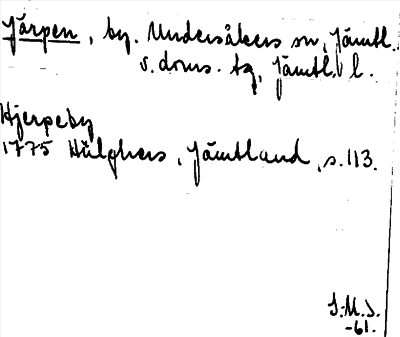 Järpen, by. Undersåkers sn, Jämtl.
s. doms. tg, Jämtl. l.
Hjerpeby
1775 Hülphers, Jämtland, s. 113.
S.M.S.
-61.